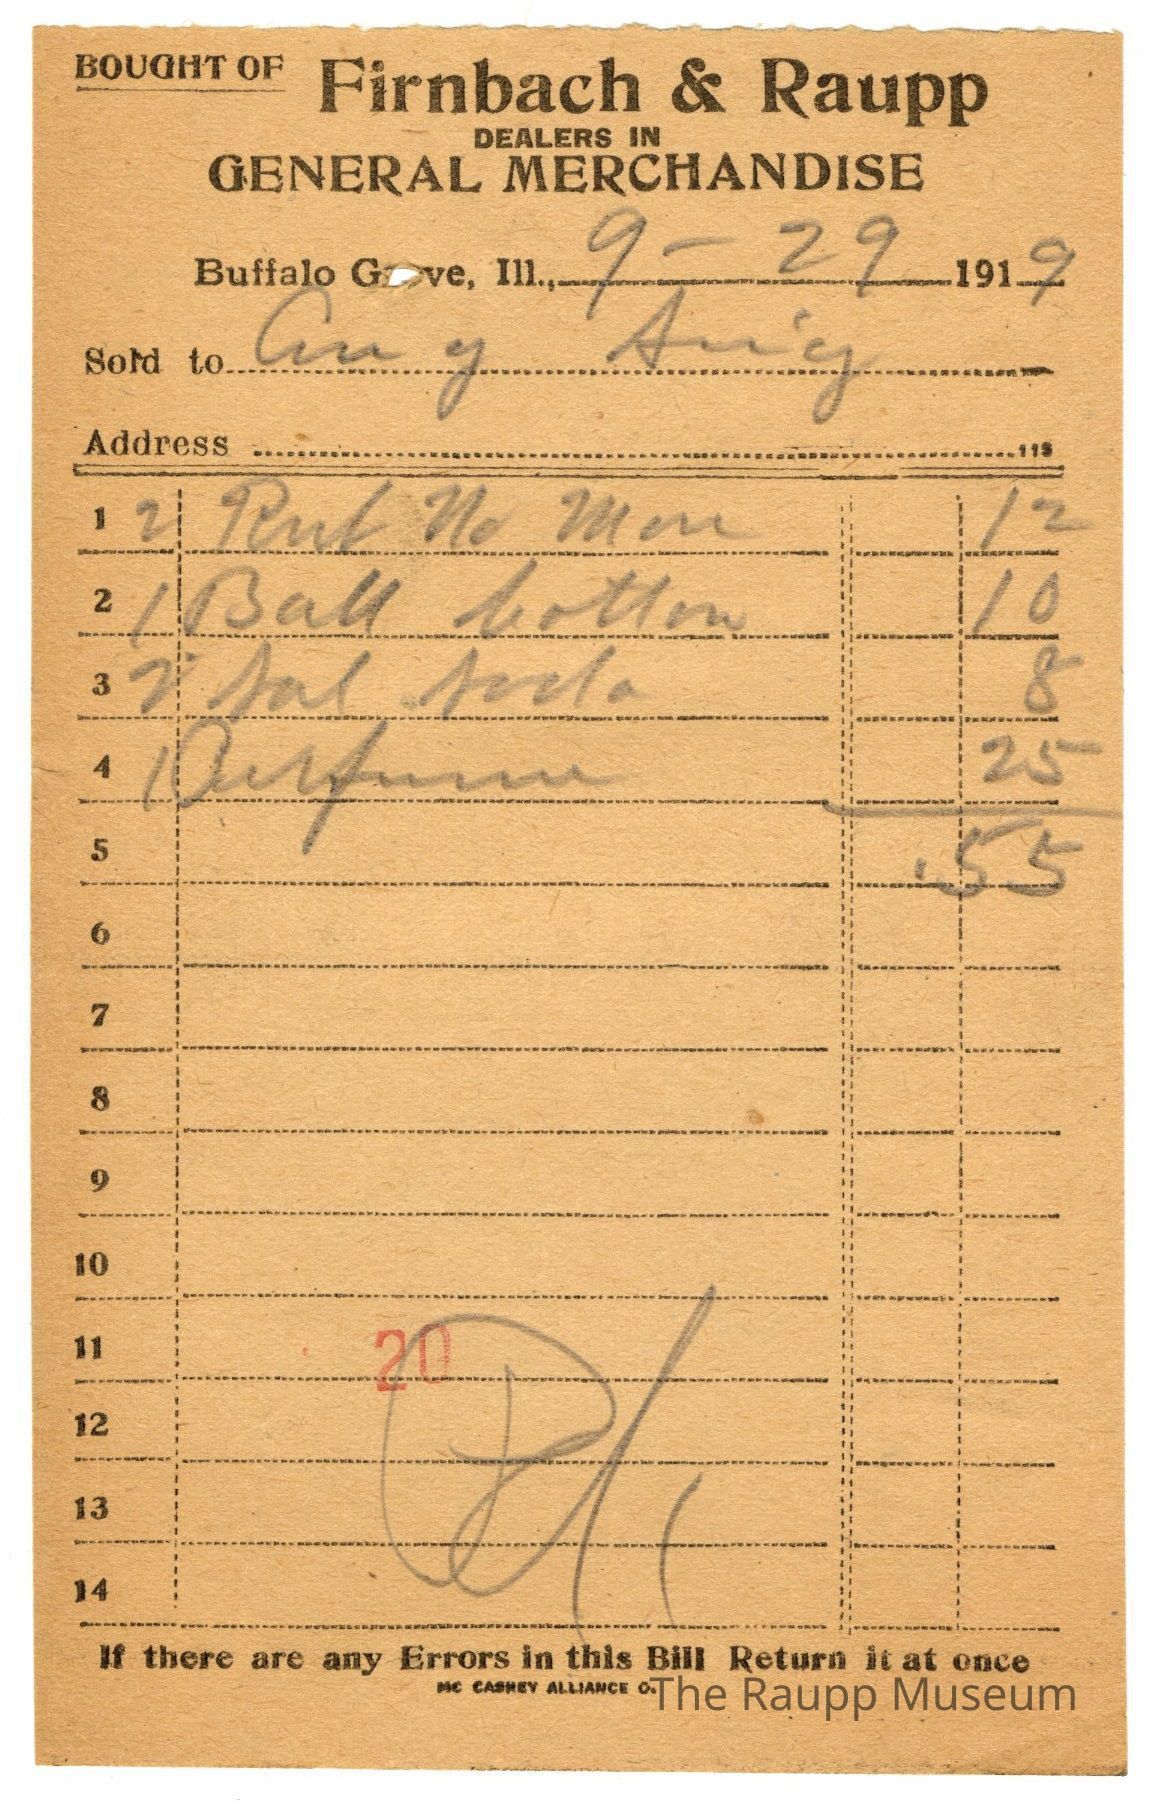 BOUGHT OF Firnbach & Raupp
DEALERS IN
GENERAL MERCHANDISE
Buffalo Grove, Ill., 9-29 1919
Sold to
Address 113
1 2 Rub No More 12
2 1 Ball Cotton 10
3 2 Sal Soda 8
4 1 Perfume 25
5 .55
6
7
8
9
10
11 20
12
13
14
If there are any Errors in this Bill Return it at once
MC CASKEY ALLIANCE O.
The Raupp Museum